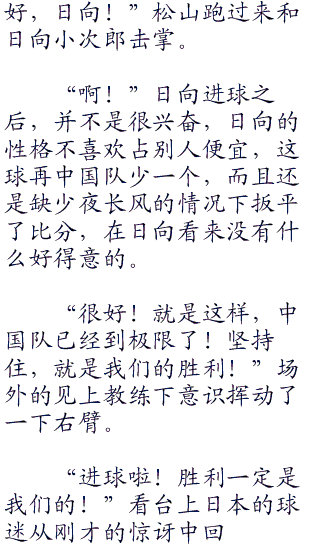 好，日向！”松山跑过来和
日向小次郎击掌。
“啊！”日向进球之
后，并不是很兴奋，日向的
性格不喜欢占别人便宜，这
球再中国队少一个，而且还
是缺少夜长风的情况下扳平
了比分，在日向看来没有什
么好得意的。
“很好！就是这样，中
国队已经到极限了！坚持
住，就是我们的胜利！”场
外的见上教练下意识挥动了
一下右臂。
“进球啦！胜利一定是
我们的！”看台上日本的球
迷从刚才的惊讶中回